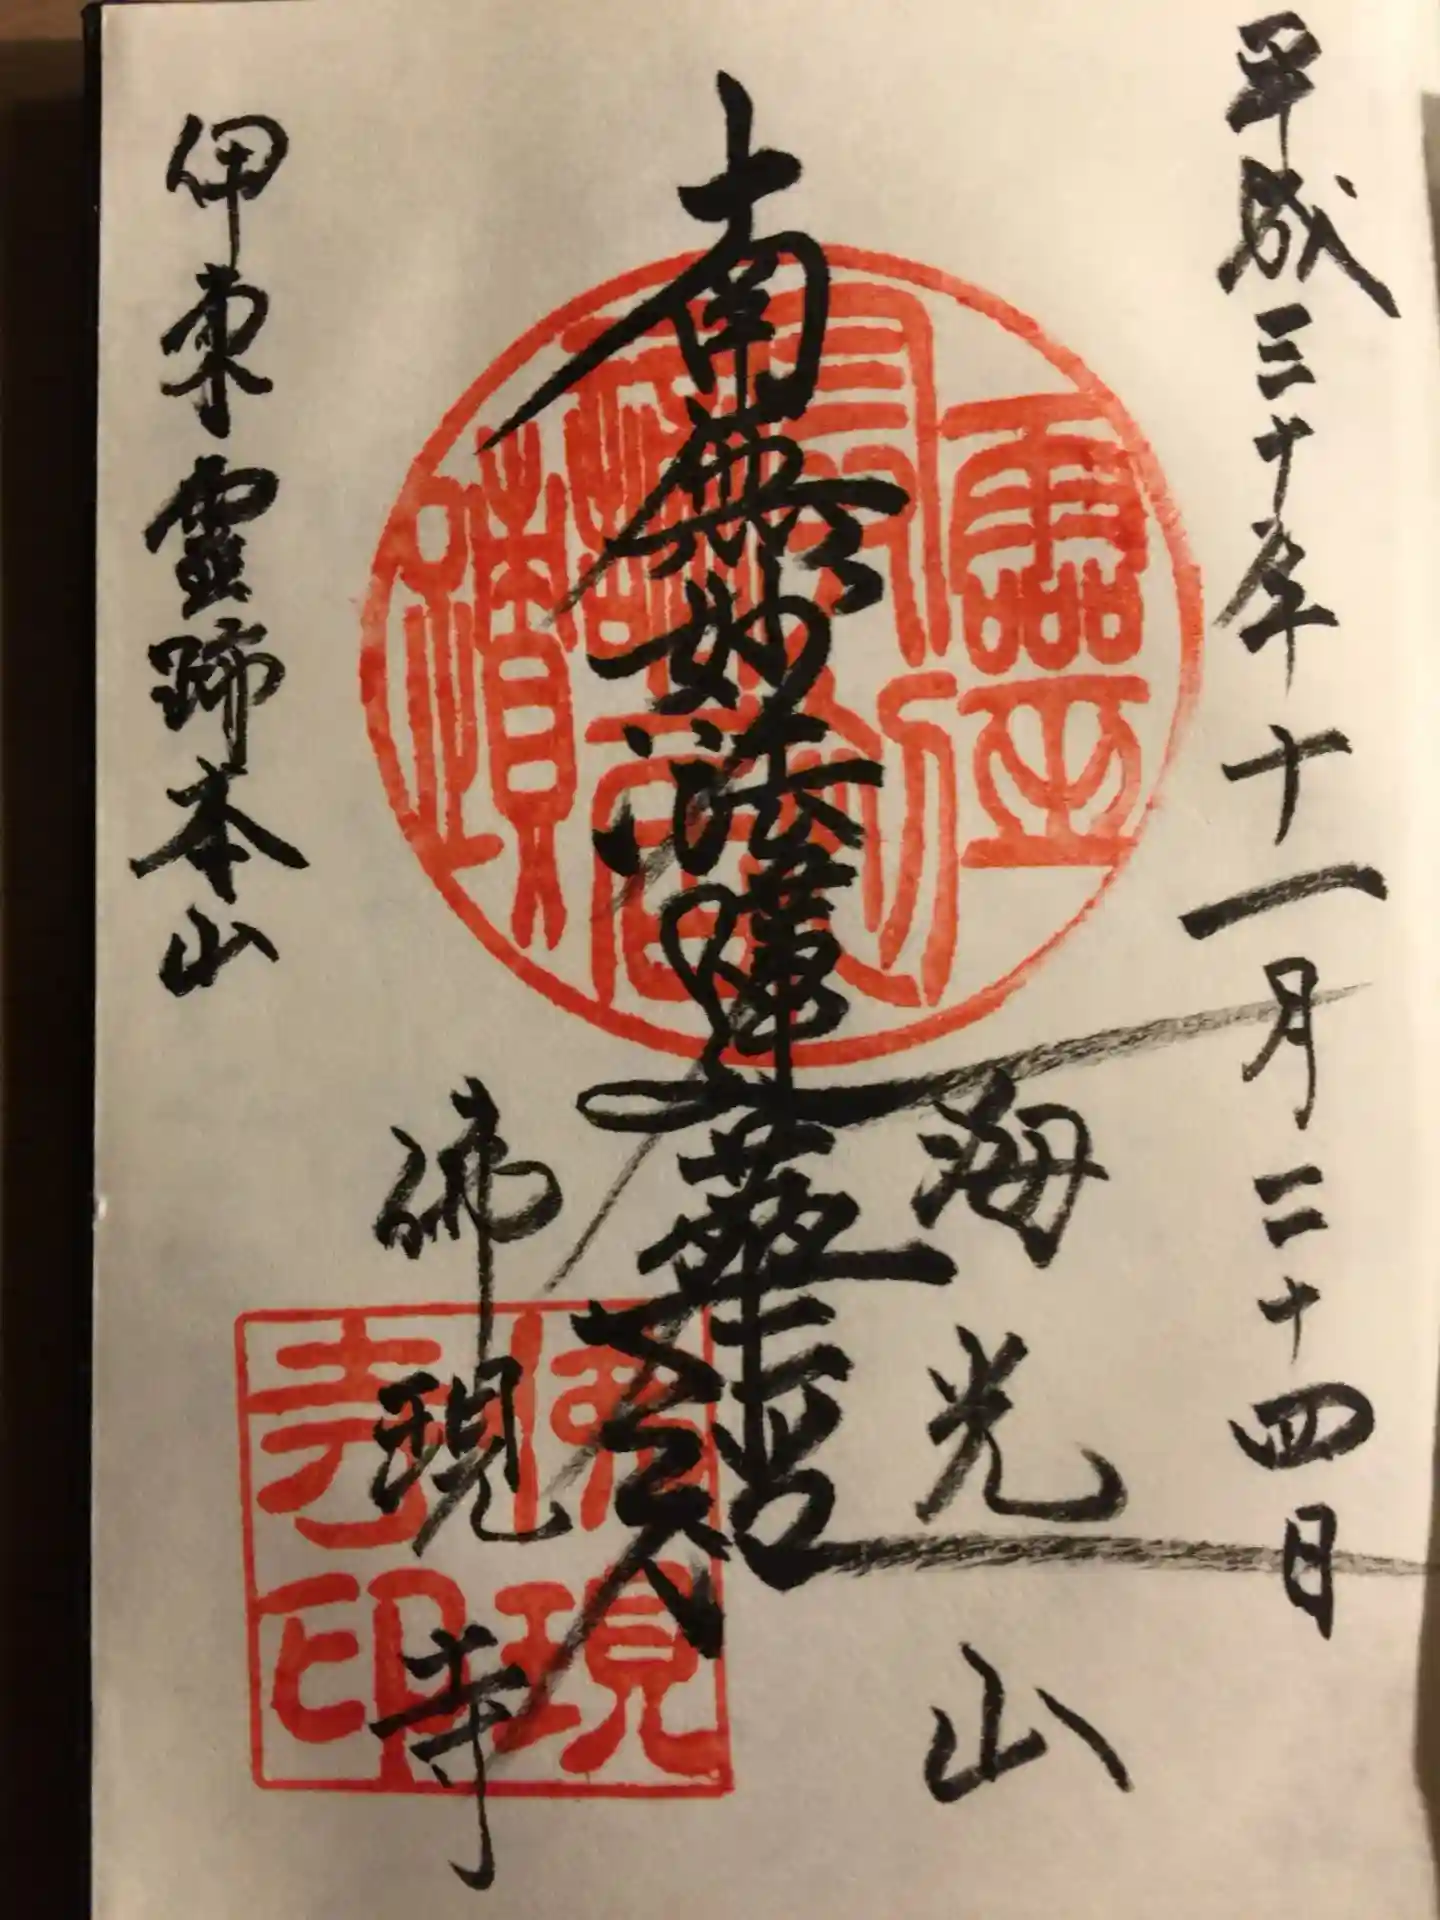 平成三十年十一月二十四日
海光山
南無妙法蓮華経
佛現寺
伊東霊跡本山
佛現
寺印